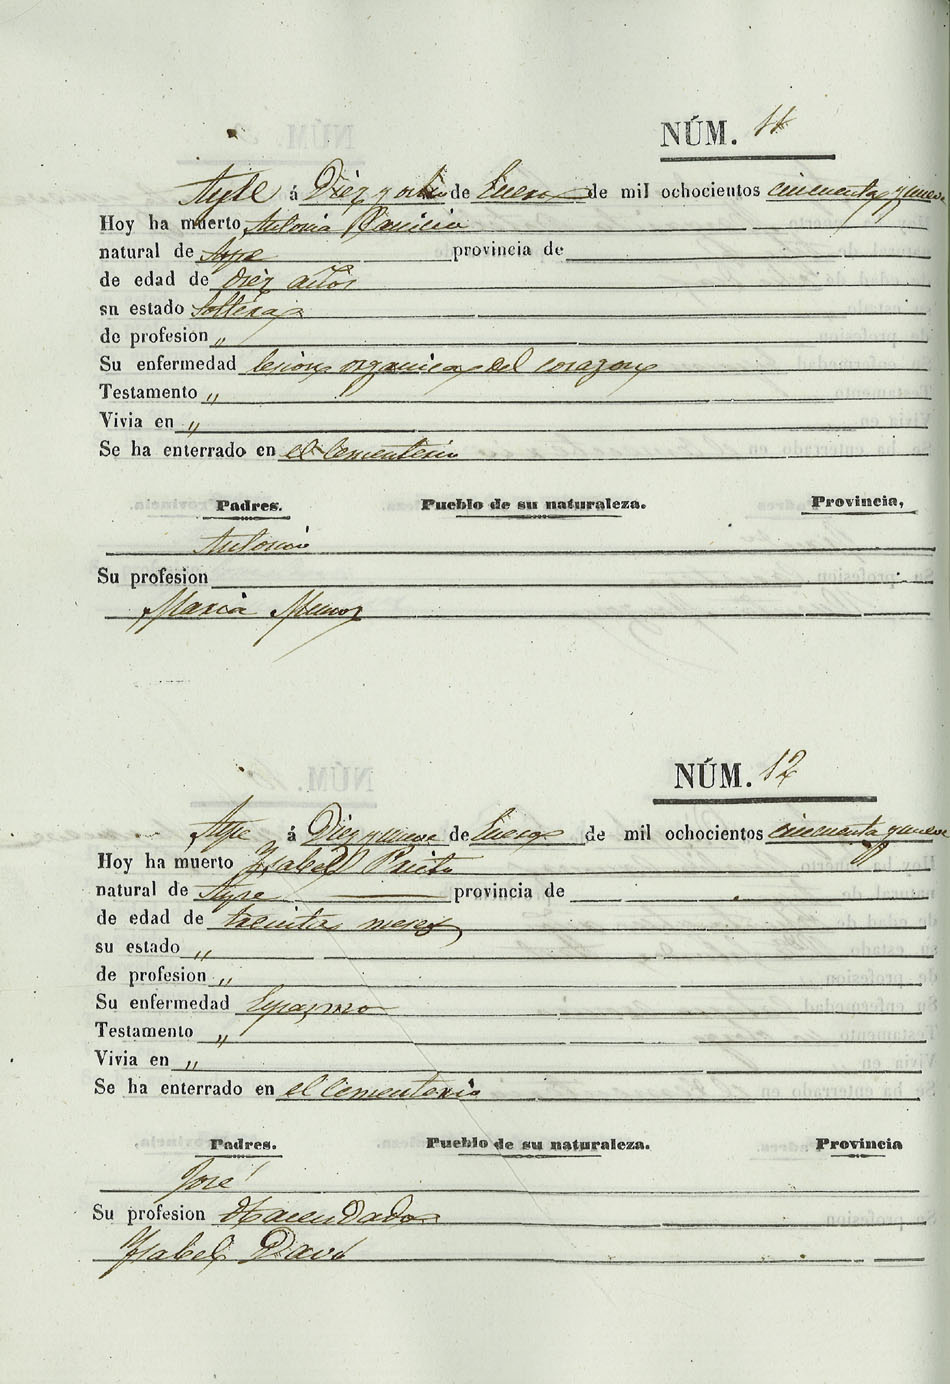 NÚM. 11
Aspe á Diez y ocho de Enero de mil ochocientos cincuenta y nueve
Hoy ha muerto Antonia
natural de Aspe provincia de
de edad de diez años
sn estado Soltera
de profesion „
Su enfermedad lesion organica del corazon
Testamento „
Vivia en „
Se ha enterrado en el Cementerio
Padres. Pueblo de su naturaleza. Provincia,
Antonio
Su profesion
Maria Munoz
NÚM. 12
Aspe á Diez y nueve de Enero de mil ochocientos cincuenta y nueve
Hoy ha muerto Ysabel Prieto
natural de Aspe provincia de
de edad de treinta meses
su estado „
de profesion „
Su enfermedad Espasmo
Testamento „
Vivia en „
Se ha enterrado en el Cementerio
Padres. Pueblo de su naturaleza. Provincia
José
Su profesion Hacendado
Ysabel